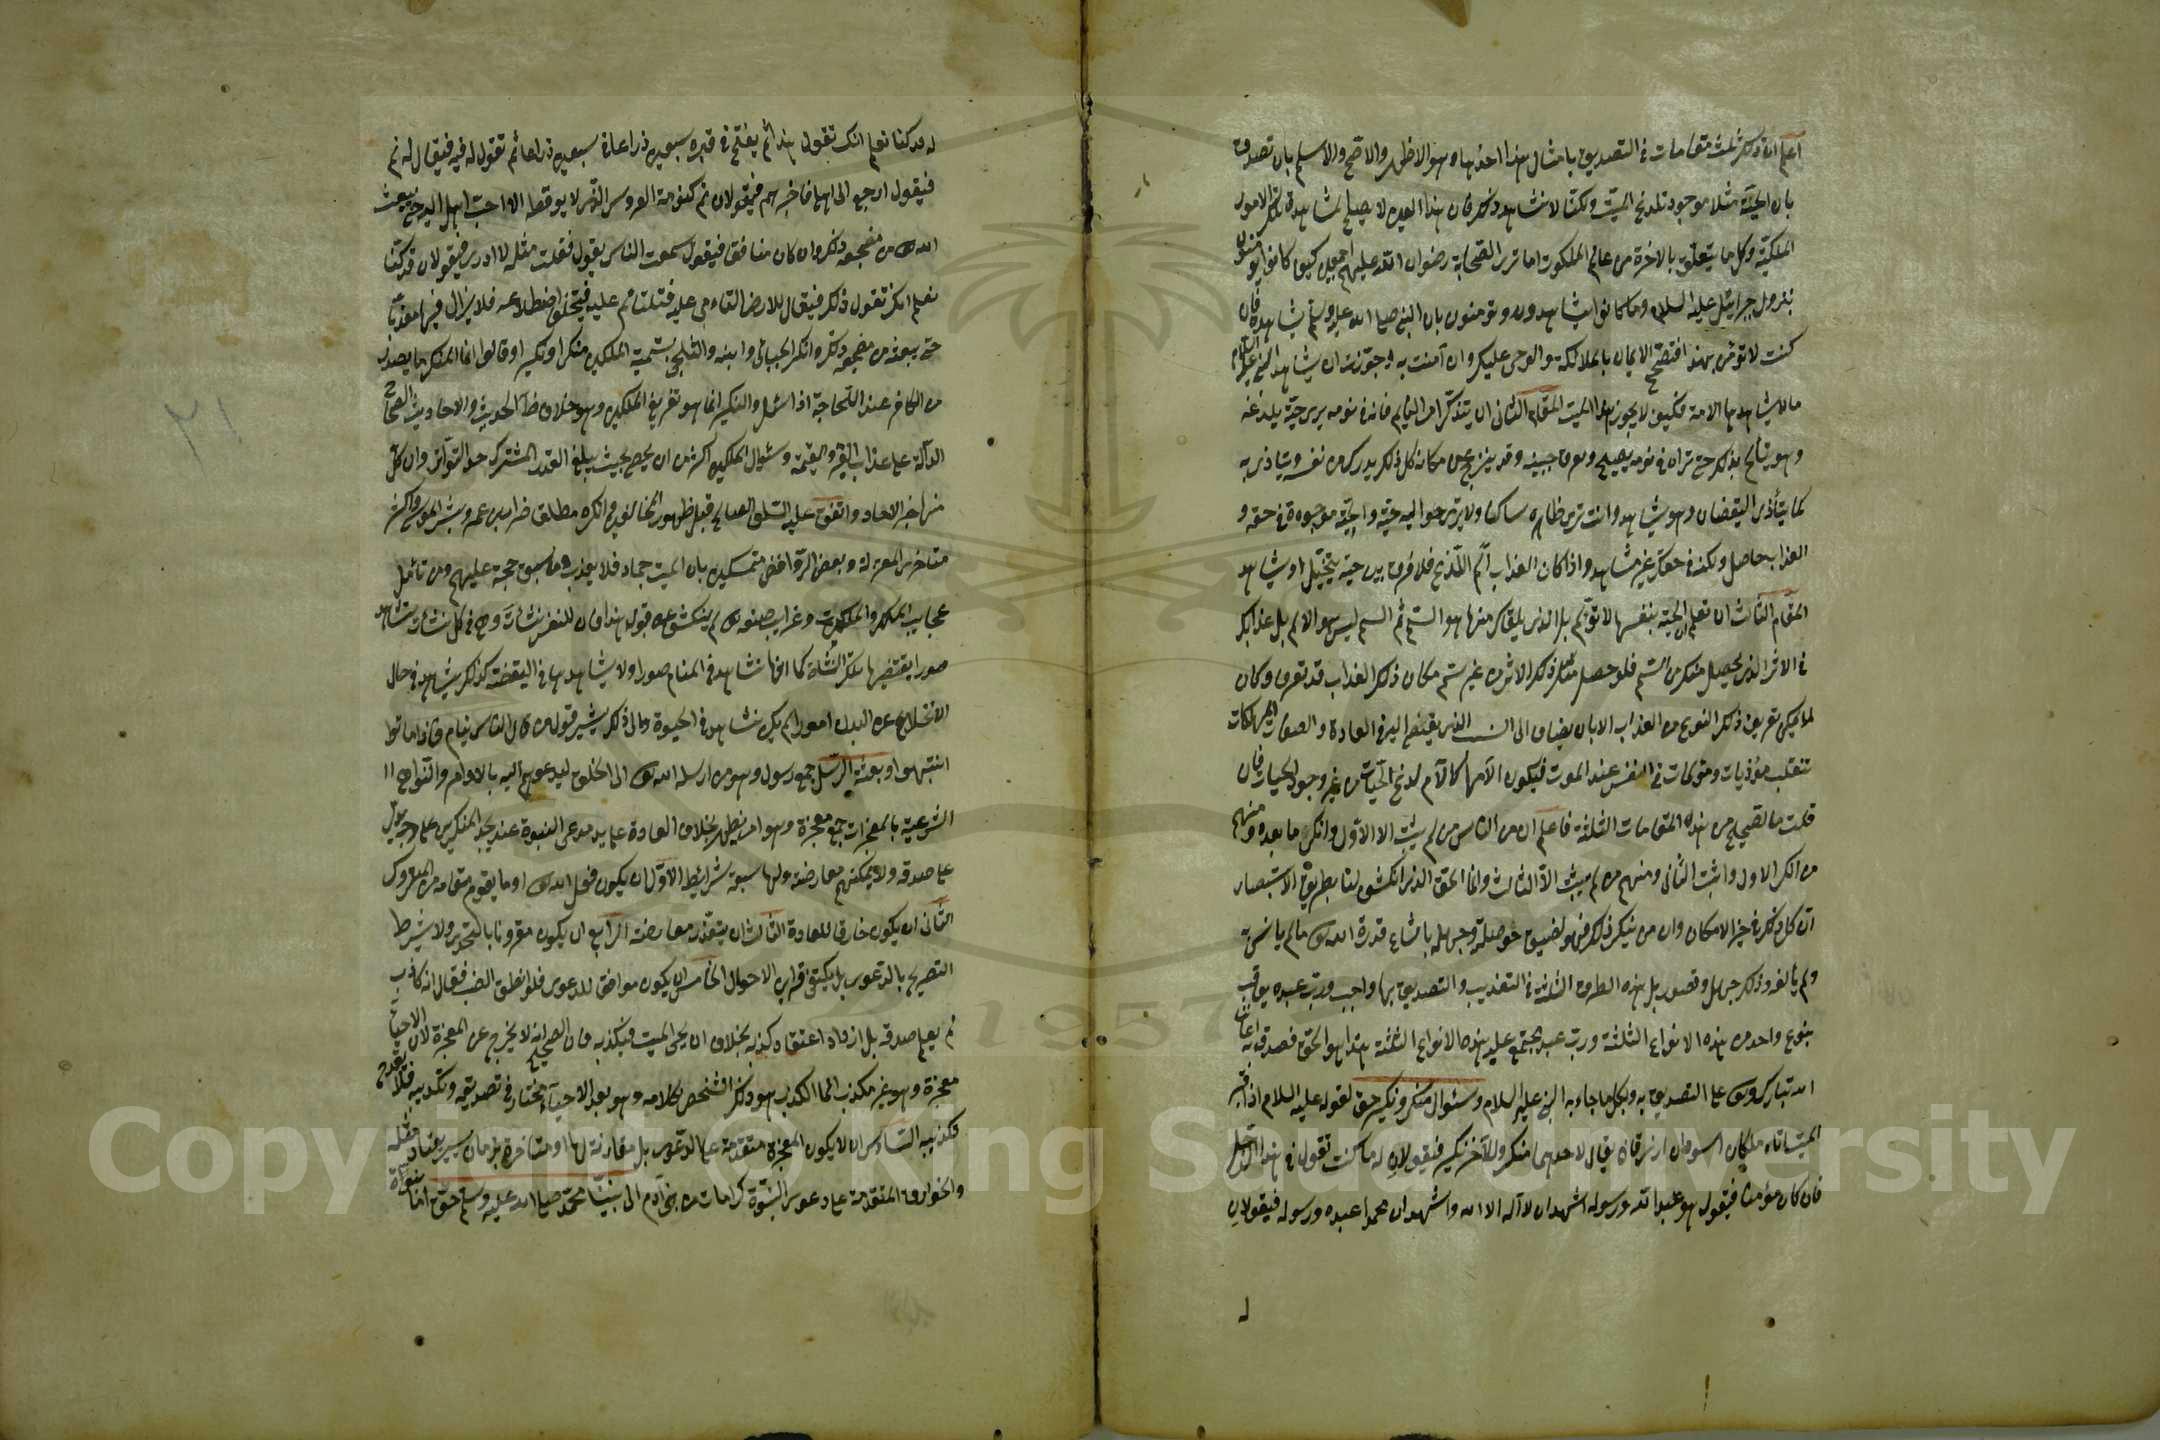 اعلم ان لك ثلث مقامات في التصديق بامثال هذا احدها وهو الاظهر والاصح والاسلم بان تصدق
بان الحية مثلا موجودة تلدغ الميت ولكنا لا نشاهد ذلك فان هذا العين لا يصلح لمشاهدة تلك الامور
الملكوتية وكل ما يتعلق بالاخرة من عالم الملكوت اما ترى الصحابة رضوان الله عليهم اجمعين كيف كانوا يؤمنون
بنزول جبرائيل عليه السلام وما كانوا يشاهدونه وتؤمنون بان النبي صلى الله عليه وسلم يشاهده فان
كنت لا تؤمن بهذا فتصحيح الايمان بالملائكة والوحي عليك وان آمنت به وجوزت ان يشاهد النبي عليه السلام
مالا يشاهدها الامة فكيف لا يجوز هذا الميت المقام الثاني ان يتذكر امر النائم فانه في نومه يرى حية يلدغه
وهو يتألم بذلك حتى تراه في نومه يصيح وعرق جبينه وقد ينزعج عن مكانه كل ذلك يدرك من نفسه ويتأذى به
كما يتأذى اليقضان وهو يشاهد وانت ترى ظاهره ساكنا ولا يرى حواليه حية والحية موجودة في حقه و
العذاب حاصل ولكنه في حقك غير مشاهد واذا كان العذاب الم اللدغ فلا فرق بين حية يتخيل او يشاهد
المقام الثالث ان تعلم ان الحية بنفسها لا تؤلم بل الذي يلقاك منها هو السم ثم السم ليس هو الالم بل عذابك
في الاثر الذي يحصل منك من السم فلو حصل مثل ذلك الاثر من غير سم مكان ذلك العذاب قد تعرف وكان
لا يمكن تعريف ذلك النوع من العذاب الا بان يضاف الى السبب الذي يفضي اليه في العادة والصفات المهلكات
تنقلب مؤذيات ومؤلمات في النفس عند الموت فيكون الآمها كالآم لدغ الحيات من غير وجود الحيات فان
قلت ما الصحيح من هذه المقامات الثلثة فاعلم ان من الناس من لم يثبت الا الاول وانكر ما بعده ومنهم
من انكر الاول واثبت الثاني ومنهم من لم يثبت الا الثالث وانما الحق الذي انكشف لنا بطريق الاستبصار
ان كل ذلك في حيز الامكان وان من ينكر ذلك فهو لضيق حوصلته وجهله باتساع قدرة الله تعالى مالم يأنس
ولم يألفه وذلك جهل وقصور بل هذه الطرق الثلثة في التعذيب والتصديق بها واجب ورب عبد يعاقب
بنوع واحد من هذه الانواع الثلثة ورب عبد يجتمع عليه هذه الانواع الثلثة هذا هو الحق فصدق به اعاننا
الله تبارك وتعالى على التصديق به وبكل ما جاء به النبي عليه السلام وسئوال منكر ونكير حق لقوله عليه السلام اذا قبر
الميت اتاه ملكان اسودان ازرقان يقال لاحدهما منكر والآخر نكير فيقولان له ما كنت تقول في هذا الرجل
فان كان مؤمنا فيقول هو عبد الله ورسوله اشهد ان لا اله الا الله واشهد ان محمدا عبده ورسوله فيقولان
له قد كنا نعلم انك تقول هذا ثم يفتح في قبره سبعين ذراعا في سبعين ذراعا ثم تقول له فيه فيقال له نم
فيقول ارجع الى اهلي فاخبرهم فيقولان نم كنومة العروس الذي لا يوقظه الا احب اهل اليه حتى يبعث
الله تعالى من مضجعه ذلك وان كان منافقا فيقول سمعت الناس يقول فقلت مثله لا ادري فيقولان قد كنا
نعلم انك تقول ذلك فيقال للارض التامي عليه فتلتام عليه فيختلف اضلاعه فلا يزال فيها معذبا
حتى يبعثه من مضجعه ذلك وانكر الجبائي وابنه والبلخي تسمية الملكين منكرا ونكيرا وقالوا انما المنكر ما يصدر
من الكافر عند التلجلجة اذا سئل والنكير انما هو تقريع الملكين وهو خلاف ظاهر الحديث والاحاديث الصحاح
الدالة على عذاب القبر ونعيمه وسئوال الملكين اكثر من ان يحصى بحيث يبلغ القدر المشترك حد التواتر وان كان كل
منها خبر الاحاد واتفق عليه السلف الصالح قبل ظهور المخالف وانكره مطلقا ضرار بن عمرو وبشر المريسي واكثر
متأخري المعتزلة وبعض الروافض متمسكين بان الميت جماد فلا يعذب وما سبق حجة عليهم ومن تأمل
عجايب الملك والملكوت وغرايب صنعه تعالى لم يستنكف عن قبول هذا فان للنفس نشآت وهي في كل نشأة تشاهد
صورا يقتضيها تلك النشأة كما انها تشاهد في المنام صورا ولا يشاهدها في اليقظة كذلك يشاهد في حال
الانخلاع عن البدن امورا لم يكن تشاهد في الحيوة والى ذلك يشير قول من قال الناس نيام فاذا ماتوا
انتبهوا وبعثة الرسل جمع رسول وهو من ارسله الله تعالى الى الخلق ليدعوهم اليه بالاوامر والنواهي
الشرعية بالمعجزات جمع معجزة وهو امر يظهر بخلاف العادة على يد مدعي النبوة عند تحدي المنكرين على وجه يدل
على صدقه ولا يمكنهم معارضته ولها سبعة شرايط الاول ان يكون فعل الله تعالى او ما يقوم مقامه من المتروك
الثاني ان يكون خارقا للعادة الثالث ان يتعذر معارضته الرابع ان يكون مقرونا بالتحدي ولا يشترط
التصريح بالدعوى بل يكتفى قراين الاحوال الخامس ان يكون موافقا للدعوى فلو انطق الضب فقال انه كاذب
لم يعلم صدقه بل ازداد اعتقاد كذبه بخلاف ان يحيي الميت فيكذبه فان الصحيح انه لا يخرج عن المعجزة لان الاحياء
معجزة وهو غير مكذب انما المكذب هو ذلك الشخص بكلامه وهو بعد الاحياء مختار في تصديقه وتكذيبه فلا يقدح
تكذيبه السادس ان لا يكون المعجزة متقدمة على الدعوى بل مقارنة لها او متأخرة بزمان يسير يعتاد مثله
والخوارق المتقدمة على دعوى النبوة كرامات من بني آدم الى نبينا محمد صلى الله عليه وسلم حق اما نبوة
٢١
Copyright © King Saud University
1957